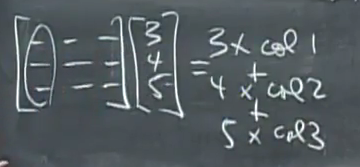 [ - - - ] [ 3 ] = 3 x col 1
[ - - - ] [ 4 ] + 4 x col 2
[ - - - ] [ 5 ] + 5 x col 3